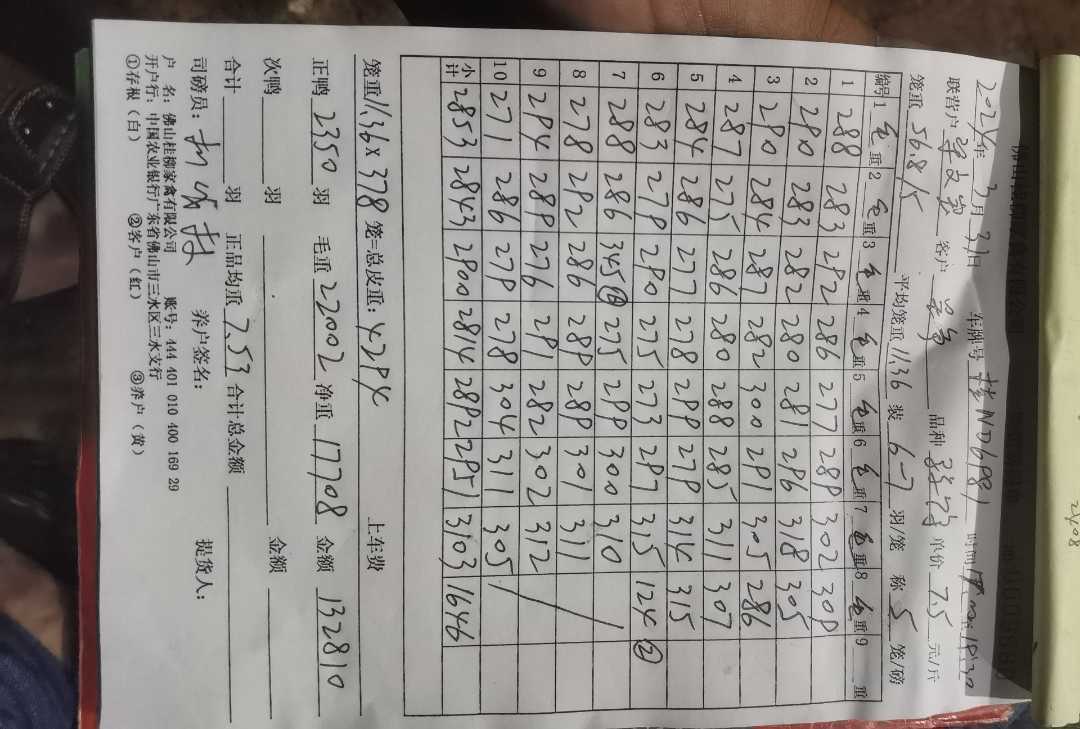 2024年3月31日 车牌号 ND6981 时间 18:30
联营户 客户 品种 单价 7.5 元/斤
笼重 56.8/5 平均笼重 11.36 装 6-7 羽/笼 称 5 笼/磅
编号 1 毛重 2 毛重 3 毛重 4 毛重 5 毛重 6 毛重 7 毛重 8 毛重 9 重
1 288 283 292 286 277 289 302 309
2 290 283 282 280 281 286 318 305
3 290 284 287 282 300 291 305 286
4 287 275 286 280 288 285 311 307
5 284 286 277 278 299 279 314 315
6 283 279 290 275 273 297 315 124 ②
7 288 286 345⑥ 275 299 300 310
8 278 292 286 289 289 301 311
9 294 289 276 291 282 302 312
10 271 286 279 278 304 311 305
小计 2853 2843 2900 2814 2892 2951 3103 1646
笼重 11.36 × 378 笼=总皮重: 4294 上车费
正鸭 2350 羽 毛重 22002 净重 17708 金额 132810
次鸭 羽 金额
合计 羽 正品均重 7.53 合计总金额
司磅员: 养户签名: 提货人:
户 名: 佛山桂柳家禽有限公司 账号: 444 401 010 400 169 29
开户行: 中国农业银行广东省佛山市三水区三水支行
①存根(白) ②客户(红) ③养户(黄)